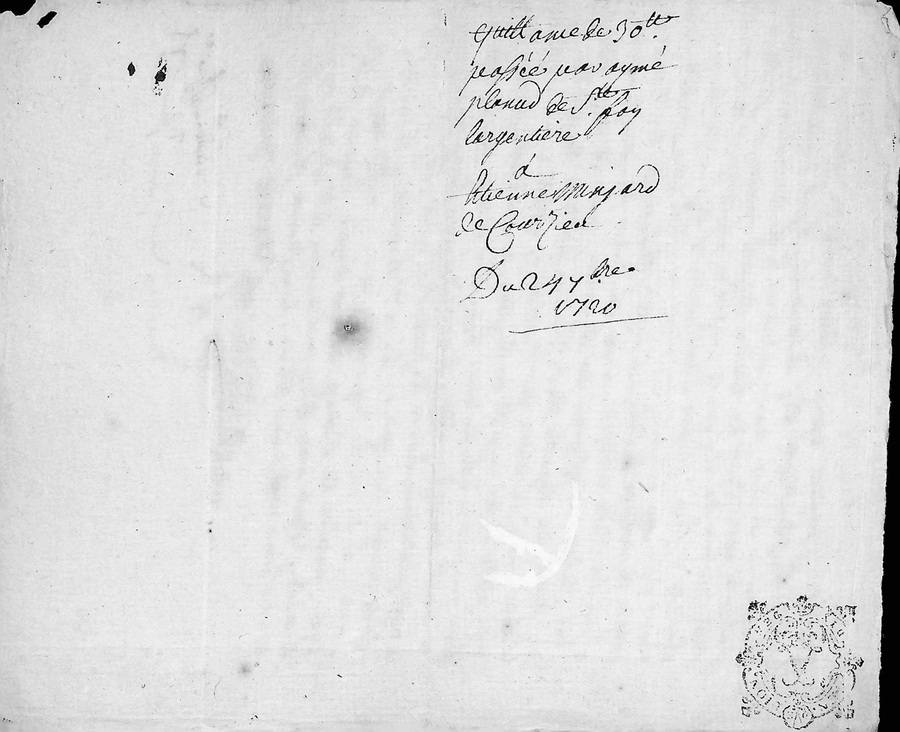 Quittance de 30ᵗᵗ
passéé par aymé
planud de Sᵗᵗ foy
largentiere
à
Etienne Minjard
de Courzieu
Du 24 7ᵇʳᵉ
1720